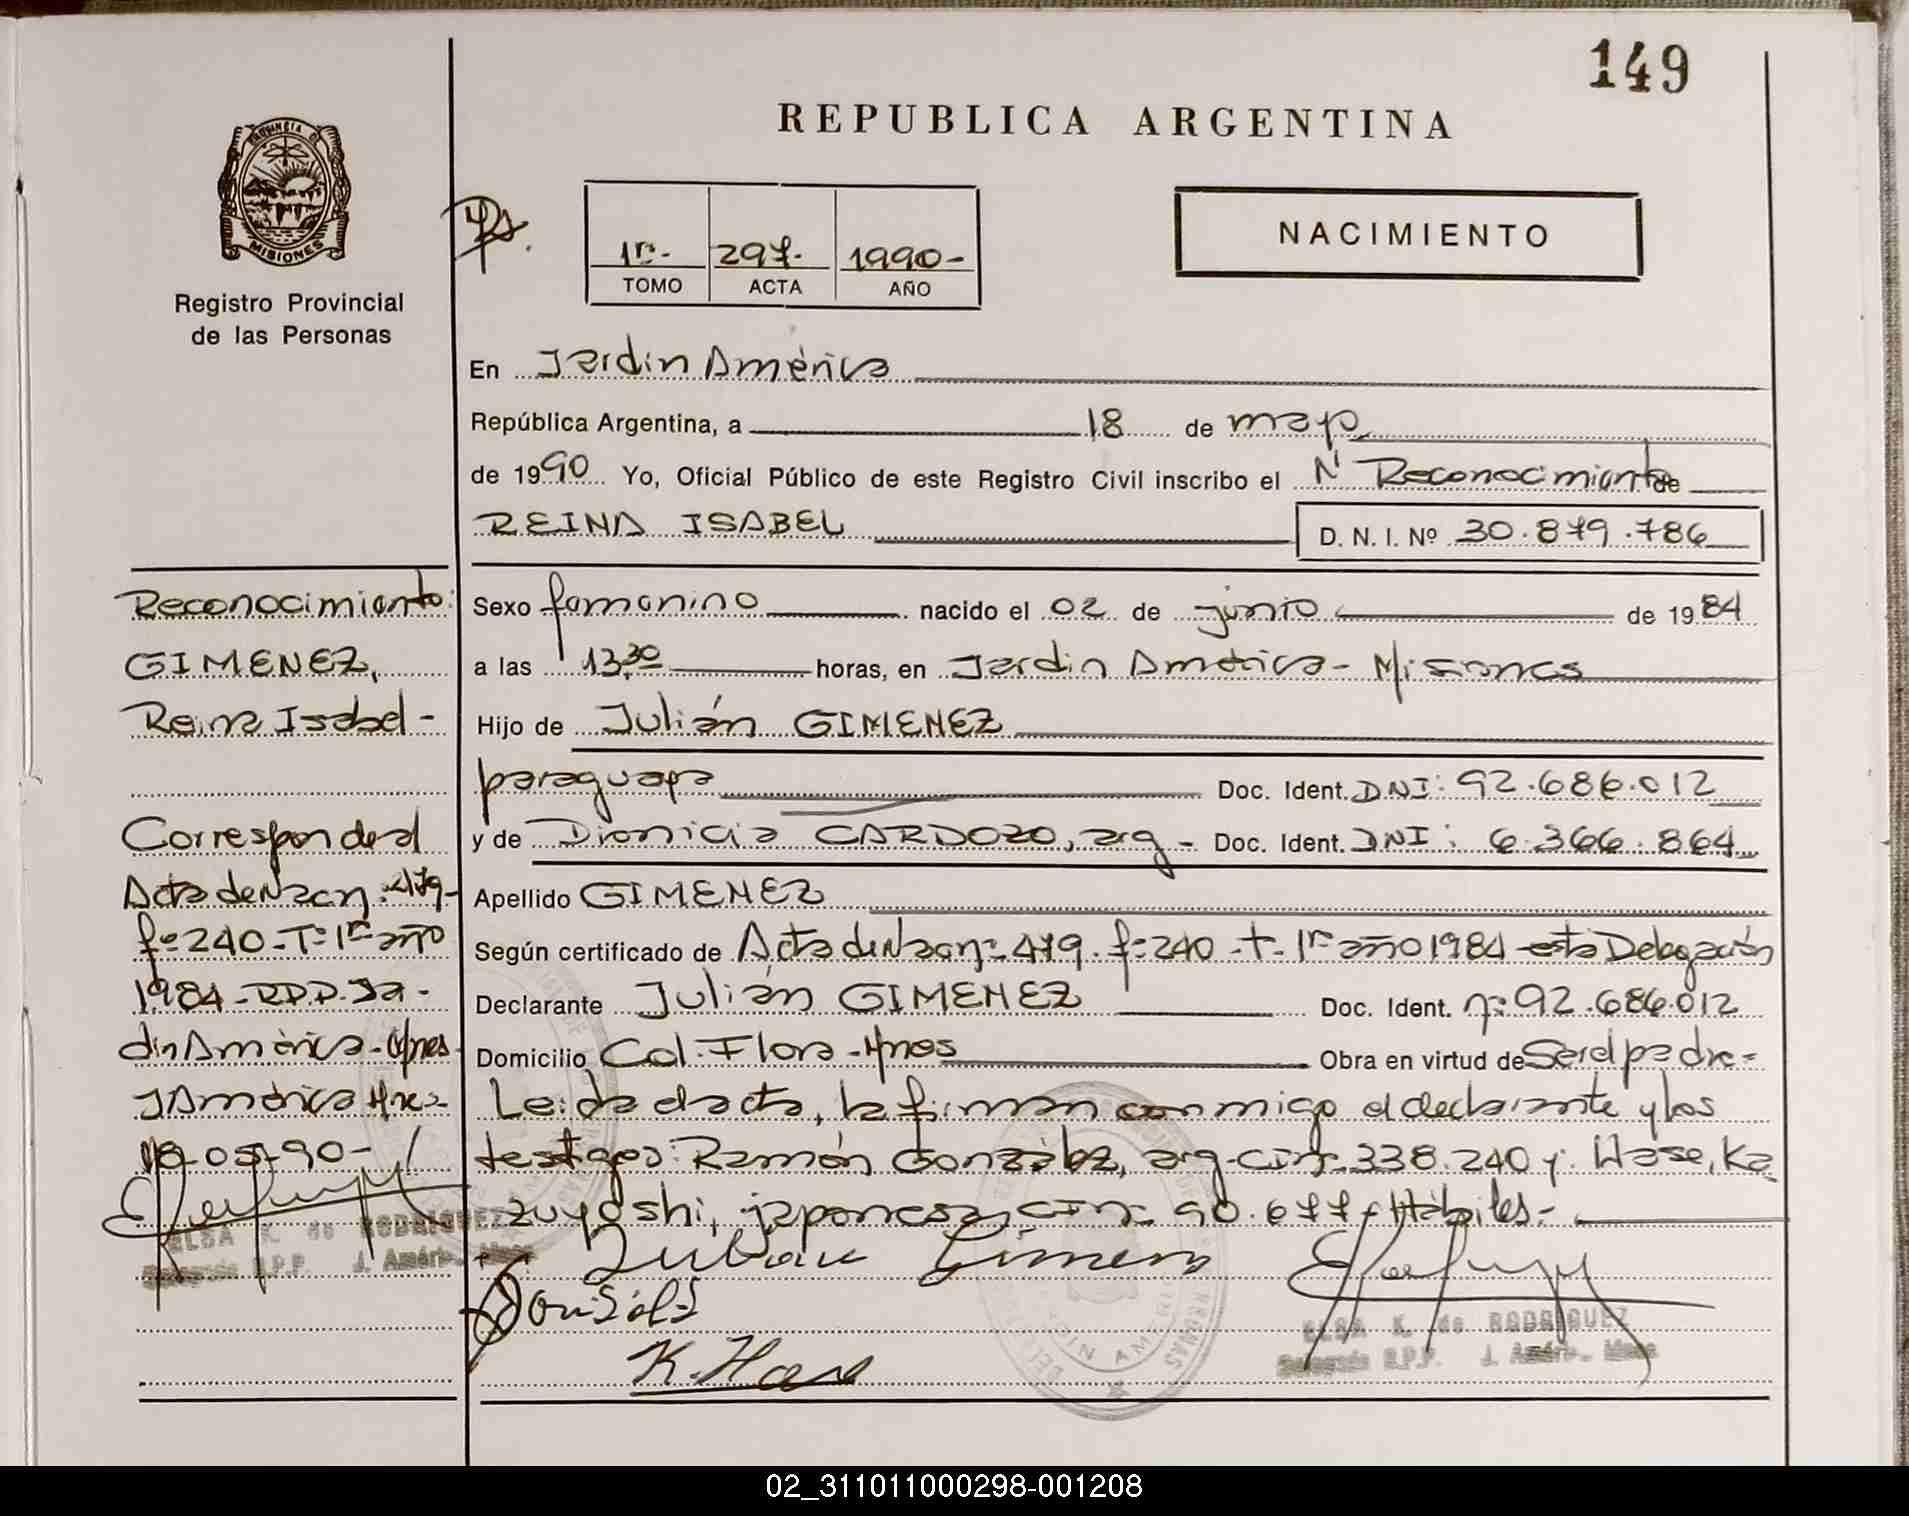 149
REPUBLICA ARGENTINA
PROVINCIA DE
MISIONES
Registro Provincial
de las Personas
1r.- 297.- 1990-
TOMO ACTA AÑO
NACIMIENTO
En Jardín América
República Argentina, a 18 de mayo
de 1990 Yo, Oficial Público de este Registro Civil inscribo el N Reconocimiento de
REINA ISABEL D. N. I. Nº 30.879.786
Sexo femenino nacido el 02 de junio de 1984
a las 13,30 horas, en Jardín América - Misiones
Hijo de Julián GIMENEZ
paraguayo Doc. Ident. DNI: 92.686.012
y de Dionicia CARDOZO, arg - Doc. Ident. DNI: 6.366.864
Apellido GIMENEZ
Según certificado de Acta de Nac nº 479. fº 240 - t. 1r año 1984 esta Delegación
Declarante Julián GIMENEZ Doc. Ident. nº 92.686.012
Domicilio Col. Flora - Mnes Obra en virtud de Ser el padre =
Leida el acta, la firman conmigo el declarante y los
testigos: Ramón González, arg - CI nº 338.240 y Hase, Ka
zuyoshi, japonesa, CI nº 90.677 - Hábiles.-
Julian Gimenez
K. Hase
ELSA K. de RODRIGUEZ
Delegada R.P.P. J. América - Mnes
Reconocimiento:
GIMENEZ,
Reina Isabel -
Corresponde al
Acta de Nac nº 479-
fº 240 - Tº 1r año
1984 - R.P.P. Ja -
din América - Mnes
J América Mnes
18-05-90-
ELSA K. de RODRIGUEZ
Delegada R.P.P. J. América - Mnes
02_311011000298-001208